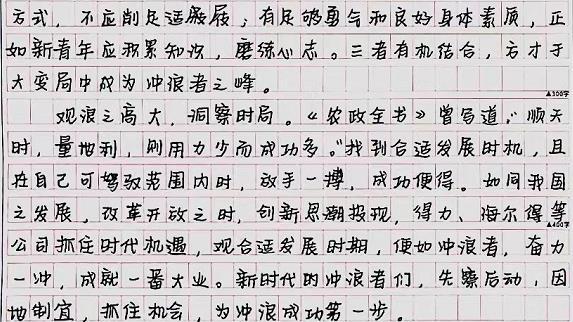 方式，不应削足适履展；有足够勇气和良好身体素质，正
如新青年应积累知识，磨练心志。三者有机结合，方才于
大变局中成为冲浪者之峰。
▲300字
观浪之高大，洞察时局。《农政全书》曾写道，"顺天
时，量地利，则用力少而成功多。"找到合适发展时机，且
在自己可驾驭范围内时，放手一搏，成功便得。如同我国
之发展，改革开放之时，创新思潮投现，得力、海尔得等
▲400字
公司抓住时代机遇，观合适发展时期，便如冲浪者，奋力
一冲，成就一番大业。新时代的冲浪者们，先察后动，因
地制宜，抓住机会，为冲浪成功第一步。